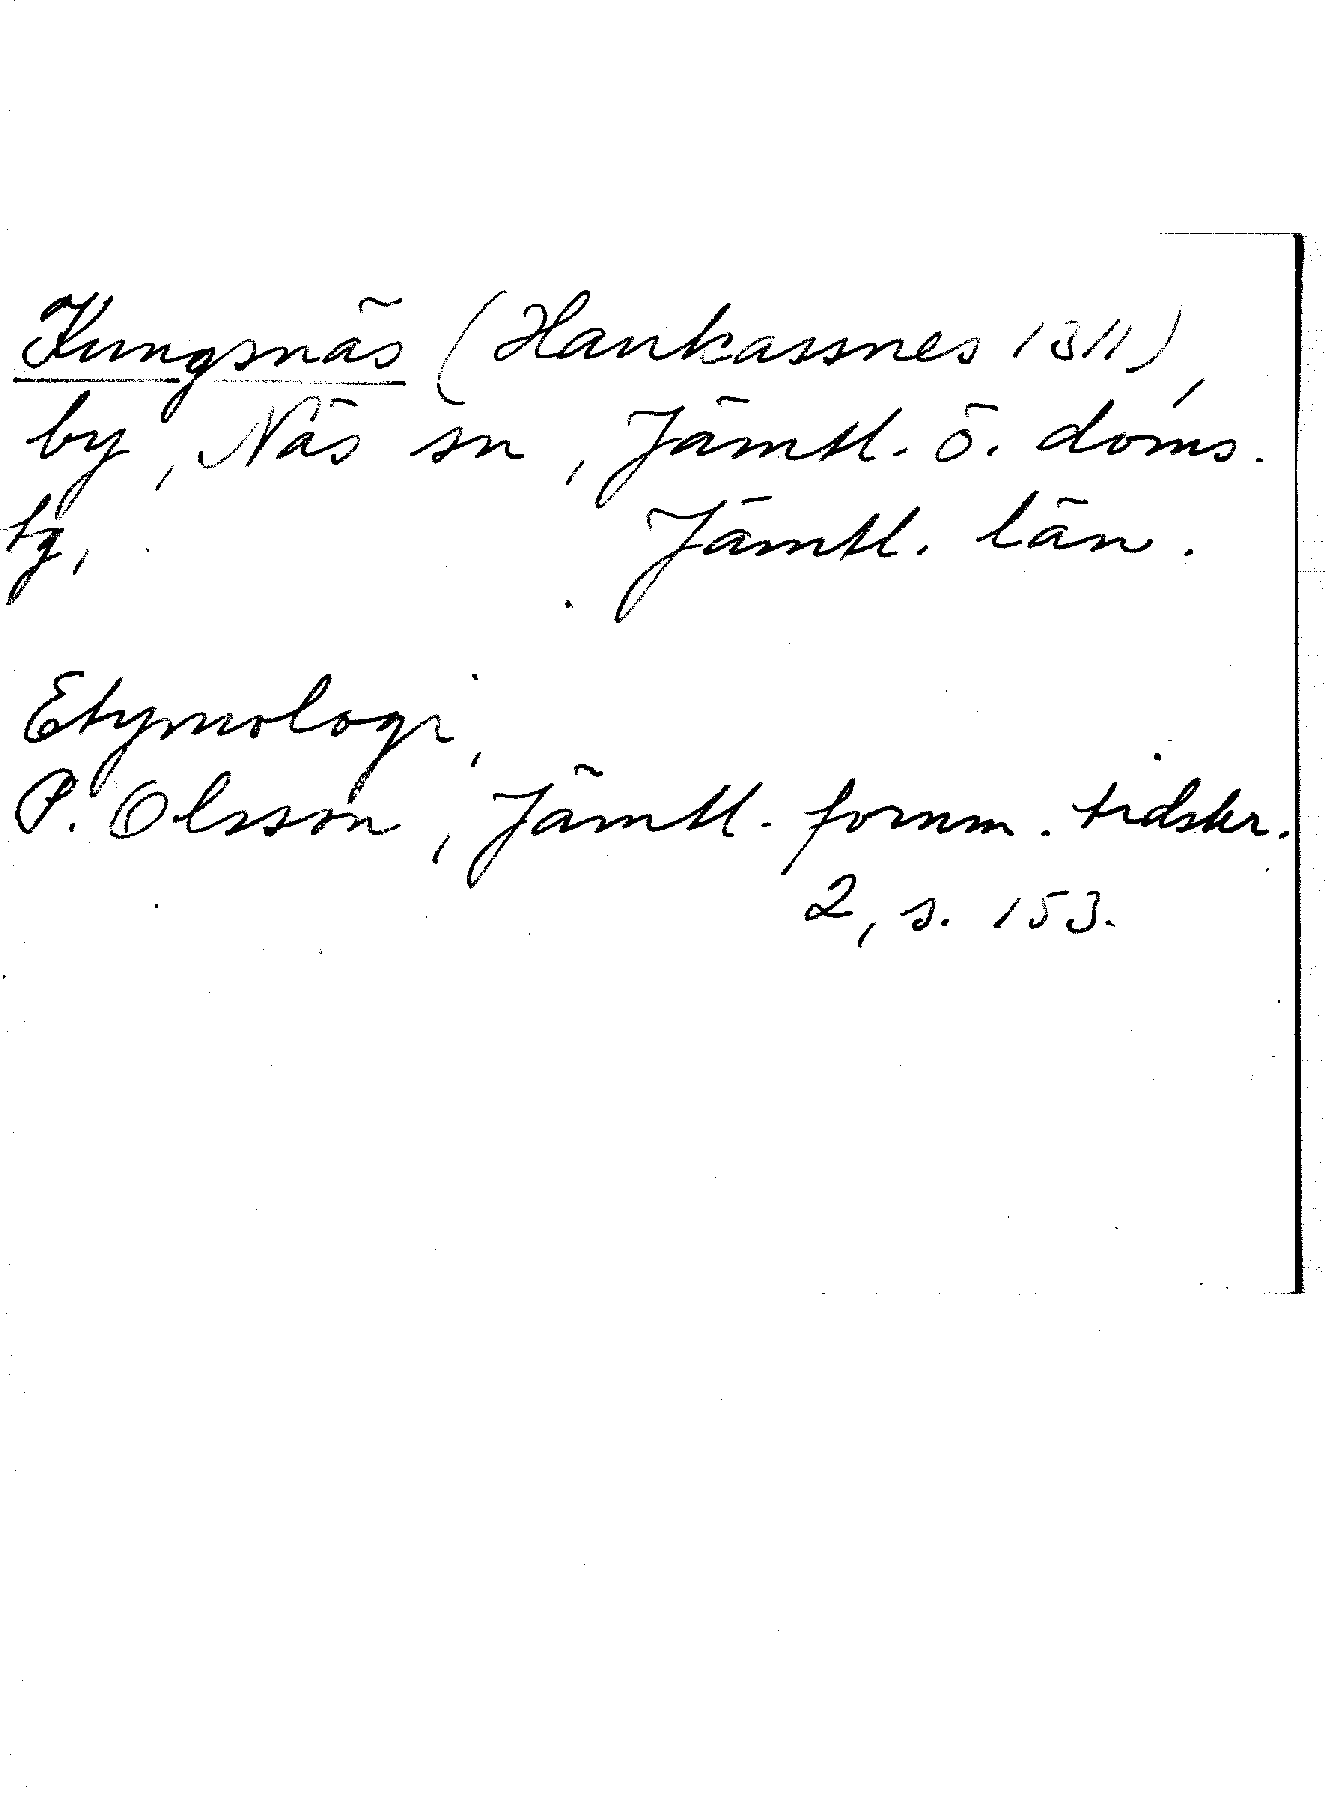 Kungsnäs (Haukassnes 1311),
by, Näs sn, Jämtl. ö. doms.
tg, Jämtl. län.
Etymologi,
P. Olsson, Jämtl. fornm. tidskr.
2, s. 153.